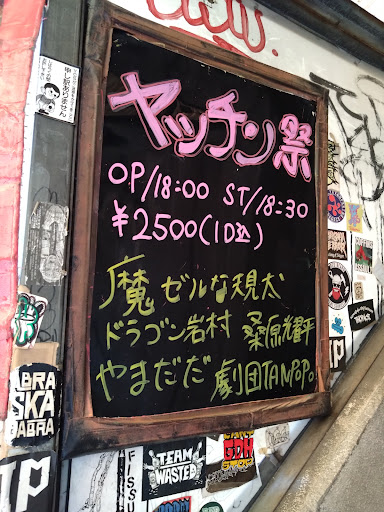 ヤッチン祭
OP/18:00 ST/18:30
¥2500(1D込)
魔ゼルな規犬
ドラゴン岩村 桑原光平
やまだだ 劇団TANPOPO
申し訳ありません
ABRA
SKA
DABRA
TEAM
WASTED
GDH
FISSU